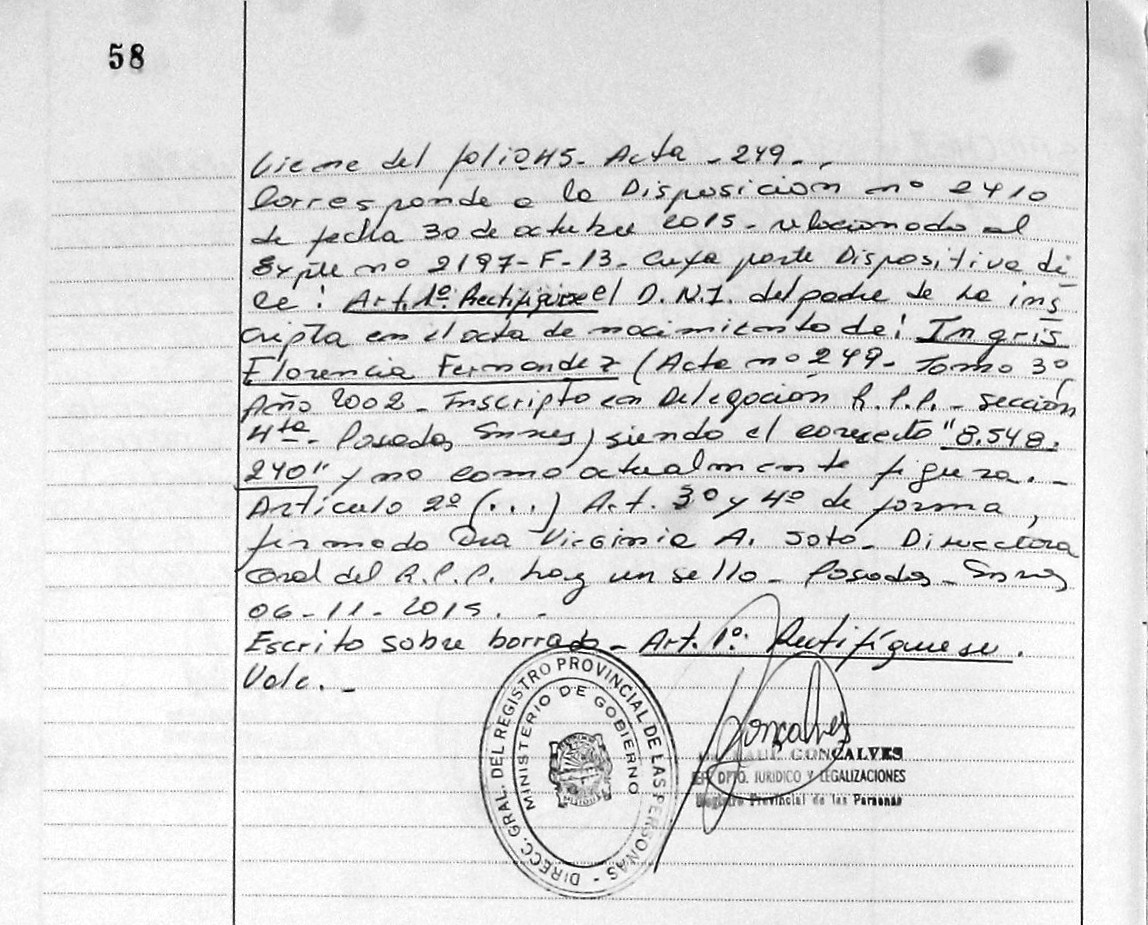 58
Viene del folio 245- Acta - 249 - .
Corresponde a la Disposición nº 2410
de fecha 30 de octubre 2015 - relacionado al
Expte nº 2197-F-13- Cuya parte Dispositiva di
ce: Art. 1º: Rectifíquese el D.N.I. del padre de la ins
cripta en el acta de nacimiento de: Ingris
Florencia Fernandez (Acta nº 249- Tomo 3º
Año 2002 - Inscripto en Delegación R.P.P. - Sección
4ta - Posadas, Mnes) siendo el correcto "8.548.
240" y no como actualmente figura. -
Artículo 2º (...) Art. 3º y 4º de forma,
firmado Dra Virginia A. Soto - Directora
Gral del R.P.P. hay un sello - Posadas - Mnes
06-11-2015. -
Escrito sobre borrado - Art. 1º: Rectifíquese.
Vale. -
DIRECC. GRAL. DEL REGISTRO PROVINCIAL DE LAS PERSONAS -
MINISTERIO DE GOBIERNO
Gonçalves
GONÇALVES
DPTO. JURIDICO Y LEGALIZACIONES
Registro Provincial de las Personas